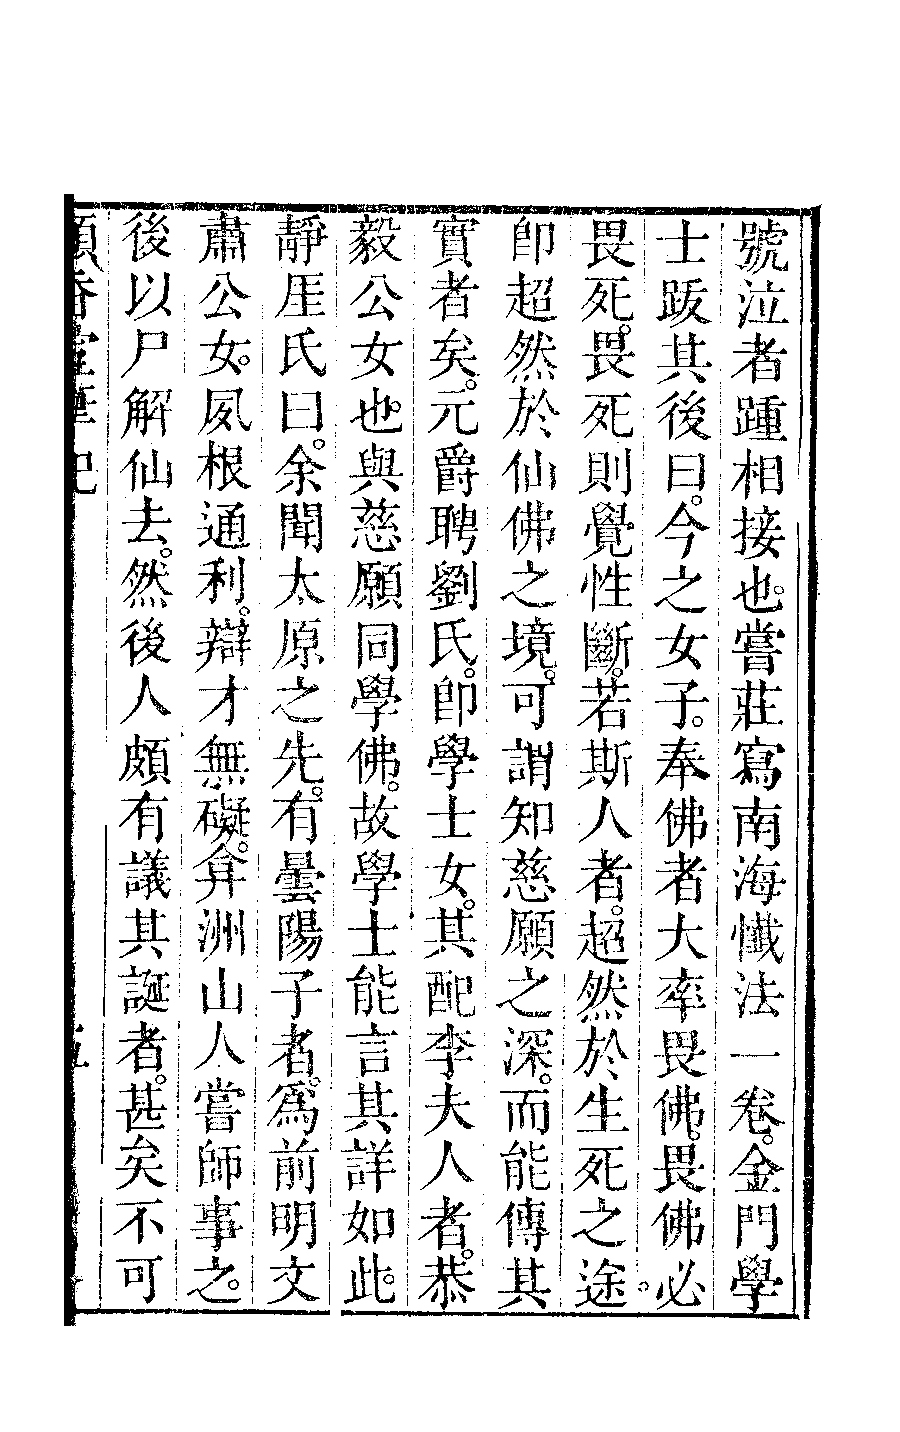 號泣者踵相接也。嘗莊寫南海懺法一卷。金門學
士跋其後曰。今之女子。奉佛者大率畏佛。畏佛必
畏死。畏死則覺性斷。若斯人者。超然於生死之途。
卽超然於仙佛之境。可謂知慈願之深。而能傳其
實者矣。元爵聘劉氏。卽學士女。其配李夫人者。恭
毅公女也。與慈願同學佛。故學士能言其詳如此。
靜厓氏曰。余聞太原之先。有曇陽子者。爲前明文
肅公女。夙根通利。辯才無礙。弇洲山人嘗師事之。
後以尸解仙去。然後人頗有議其誕者。甚矣不可
頤香室筆記
五